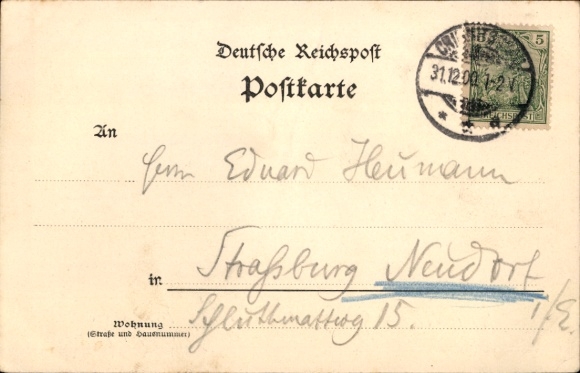 Deutsche Reichspost
Postkarte
5
31.12.00. 1-2
REICHSPOST
An
Herrn Eduard Heumann
in Straßburg Neudorf
Wohnung
(Straße und Hausnummer)
15. i/E.